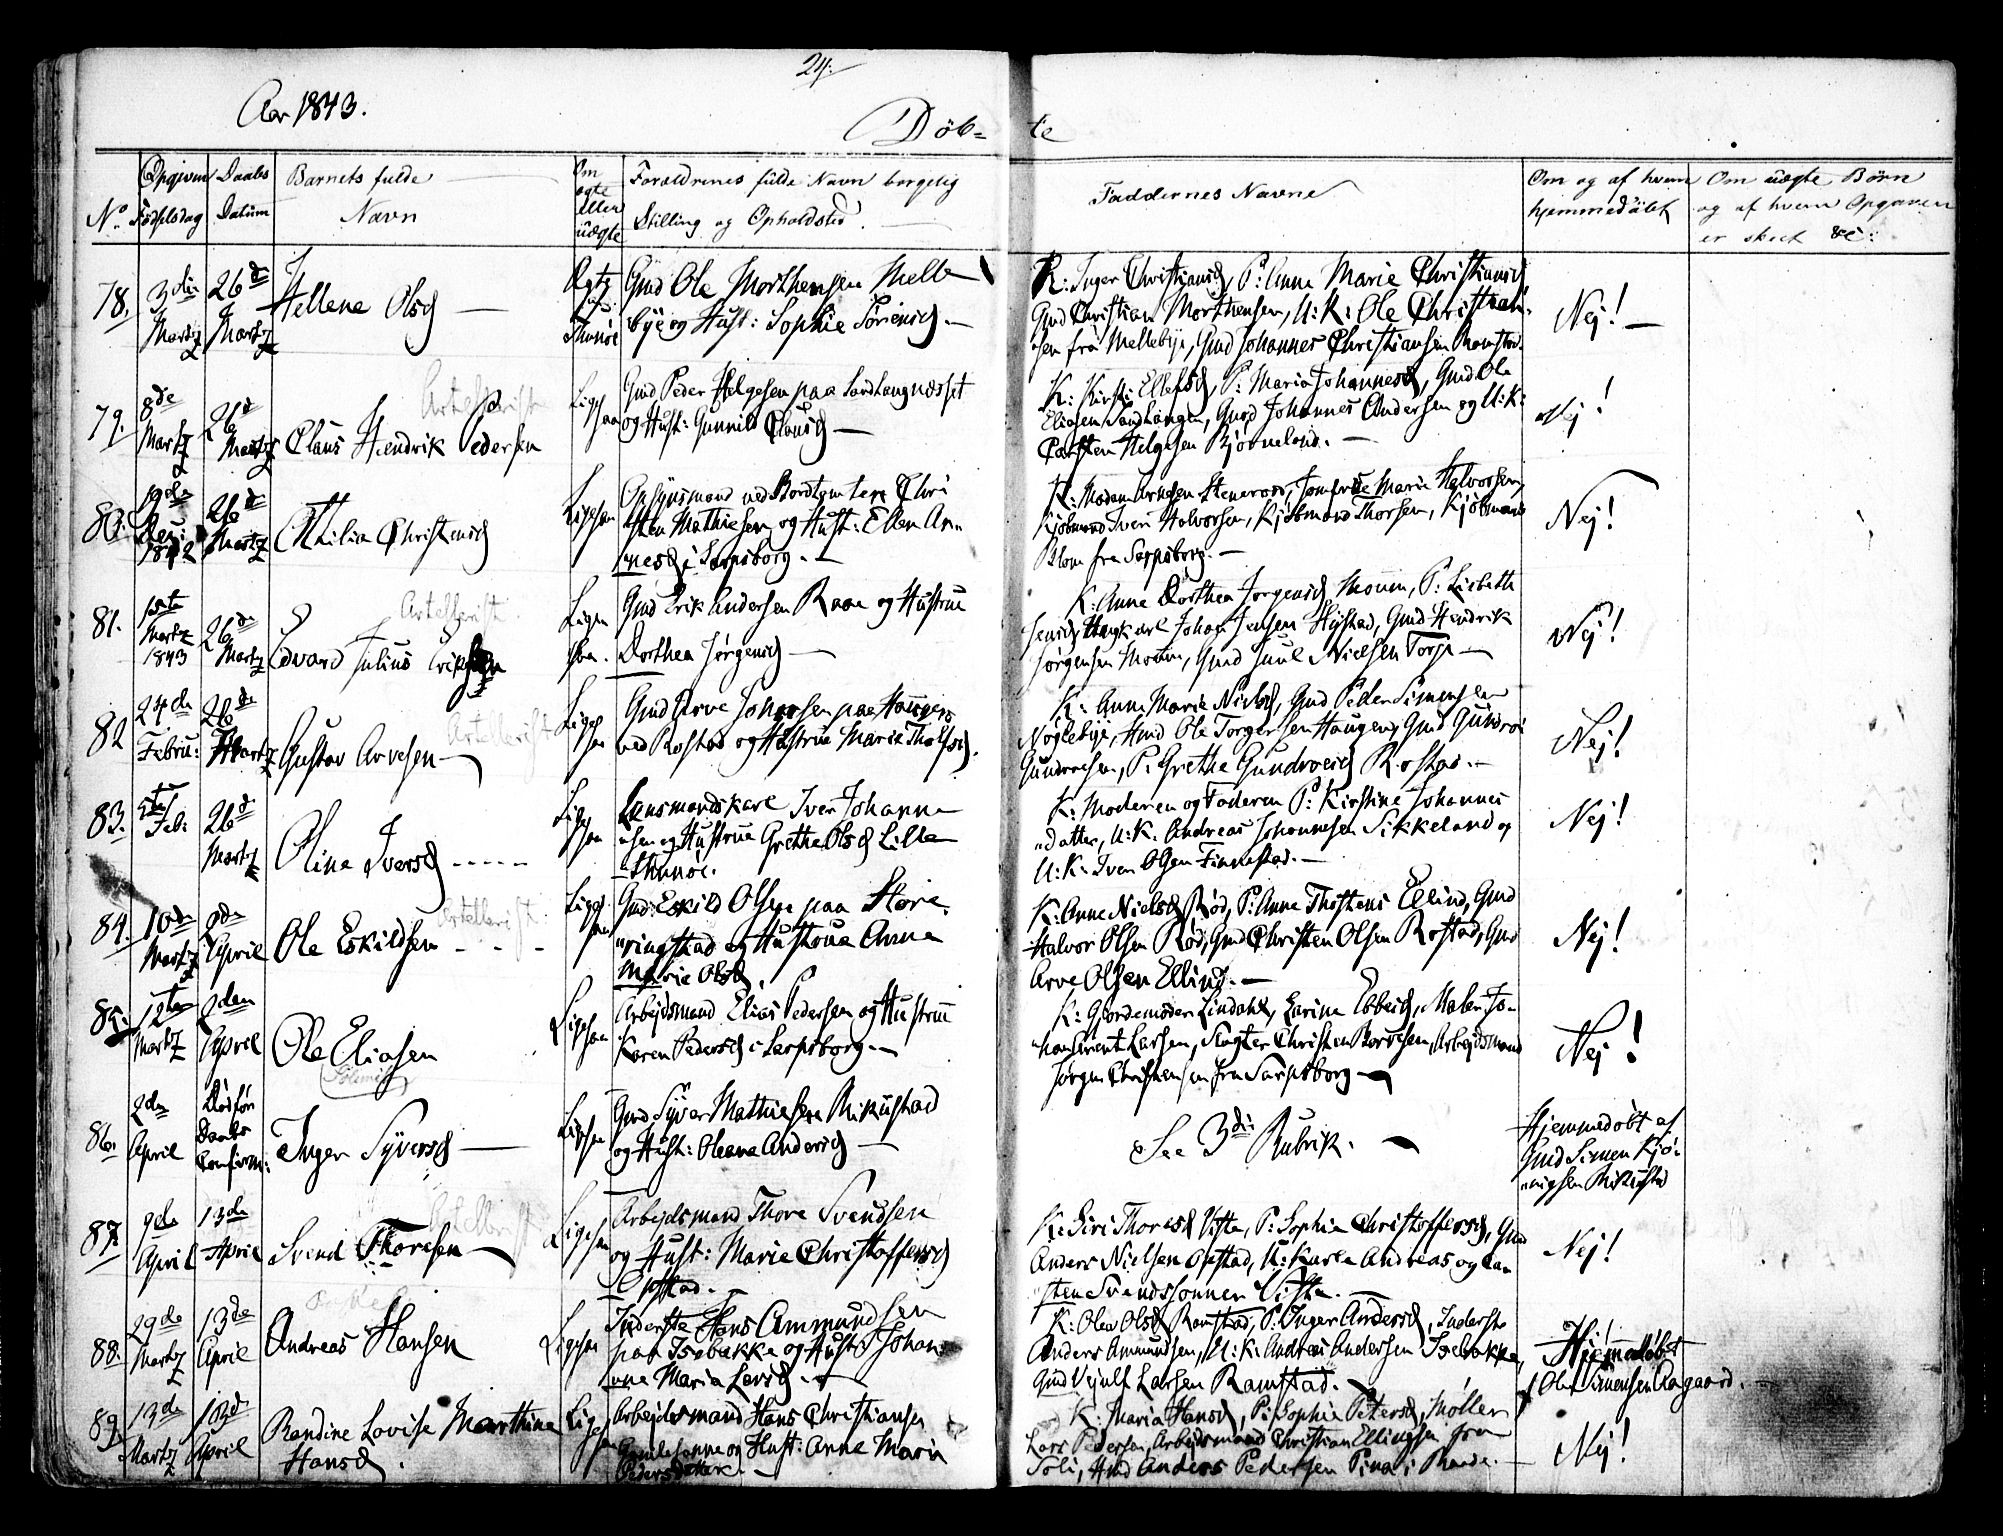 24.
Aar 1843.
Döb= te
No.
Opgiven Fødselsdag
Daabs Datum
Barnets fulde Navn
Om ægte eller uægte
Forældrenes fulde Navn borgelig Stilling og Opholdsted.
Faddernes Navne
Om og af hvem hjemmedøbt
Om uægte Børn og af hvem Opgaven er skeet &c:
78. 3die Martz 26de Martz
Hellene Olsd —
Gmd Ole Morthensen Melle-
bye og Hust: Sophie Sörensd. —
K: Inger Christiansd, P: Anne Marie Christiansd
Gmd Christian Morthensen, U: K: Ole Christian-
sen fra Mellebye, Gmd Johannes Christiansen
Nej! —
79. 8de Martz 26d Martz
Claus Hendrik Pedersen
Ligesaa
Gmd Peder Helgesen paa
og Hust: Gunnild Clausd —
K: Kirsti Ellefsd, P: Maria Johannesd, Gmd Ole
Eliasen Sandtangen, Gmd Johannes Andersen og U: K:
Carsten Helgesen Bjørneland. —
Nej!
80. 19de 1842 26de Martz
Ottilia Christensd
Ligesaa
Opsynsmand ved Bordtomten Chri
sten Mathiesen og Hust: Ellen An-
nesd i Sarpsborg. —
K: Madam Arnesen Steneroed, Jomfrue Marie Halvorsen,
Kjöbmand Iver Halvorsen, Kjöbmand Thorsen, Kjöbmand
Blom fra Sarpsborg. —
Nej!
81. 15de Martz 1843 26de Martz
Edvard Julius Eriksen
Ligesaa.
Gmd Erik Andersen Raae og Hustrue
Dorthea Jörgensd —
K: Anne Dorthea Jorgensd Moum, P: Lisbeth
Jensd, Ungkarl Johan Jensen Hystad, Gmd Hendrik
Jørgensen Moum, Gmd Juul Nielsen Torp —
Nej!
82 24de Febru: 26de Martz
Gustav Arvesen —
Ligesaa
Gmd Arve Johansen paa Haugen
ved Rostad og Hustrue Maria
K: Anne Marie Nielsd, Gmd Peder Simensen
Noglebye, Hmd Ole Torgersen Haugen, Gmd Gundro
Gundrosen, P: Grethe Gundroesd Rostad. —
Nej!
83. Feb: 26d Martz
Oline Iversd - - - - -
Ligesaa
Lensmandskarl Iver Johanne-
sen og Hustrue Grethe Olsd Lille
Thunöe.
K: Moderen og Faderen P: Kirstine Johannes
datter, U: K. Andreas Johannesen Sikkeland og
U: K: Iver Olsen Finnestad. —
Nej!
84. 10de Martz April
Ole Eskildsen - - -
Ligesaa
Gmd: Eskild Olsen paa Store-
ringstad og Hustrue Anne
Marie Olsd.
K: Anne Nielsd Rød, P: Anne Thostens Ellind, Gmd
Halvor Olsen Rød, Gmd Christen Olsen Rostad, Gmd
Arve Olsen Ellind. —
Nej!
85. 12te Martz April
Ole Eliasen
Ligesaa
Arbejdsmand Elias Pedersen og Hustrue
Karen Pedersd i Sarpsborg. —
K: Gjordemoder Lindahl, Larine Ebbesd, Maler Jo-
han Arent Larsen, Slagter Christen Borresen, Arbejdsmand
Jørgen Christensen fra Sarpsborg —
Nej!
86. 2den April Död før Daabs Confirm:
Inger Syversd —
Ligesaa
Gmd Syver Mathiesen Mikustad
og Hust: Oleane Andersd —
See 3die Rubrik. —
Hjemmedöbt af
Gmd Simen Kjö-
nigsen Mikustad
87. 9de April 13de April
Svend Thoresen —
Ligesaa
Arbejdsmand Thore Svendsen
og Hust: Marie Christoffersd
Opstad. —
K: Siri Thoresd Viste, P: Sophie Christoffersd, Gmd
Anders Nielsen Opstad, U: Karle Andreas og Car
sten Svendssönner Viste. —
Nej!
88. 29de Martz 13de April
Andreas Hansen
Ligesaa
Inderste Hans Ammundsen
paa Isebakke og Hust: Johan-
ne Maria Larsd. —
K: Olea Olsd Ramstad, P: Inger Andersd, Inderste
Anders Ammundsen, U: K: Andrea Andersen Isebakke,
Gmd Vejulf Larsen Ramstad.
Hjemmedöbt
Oluf Simensen Aagaard.
89. 13de Martz 13de April
Randine Lovise Marthine
Hansd.
Ligesaa
Arbejdsmand Hans Christiansen
og Hust: Anne Maria
Pedersdatter. —
K: Maria Hansd, P: Sophie Petersd, Møller
Lars Pedersen, Arbejdsmand Christian Ellingsen fra
Soli, Hmd Anders Pedersen
Nej!